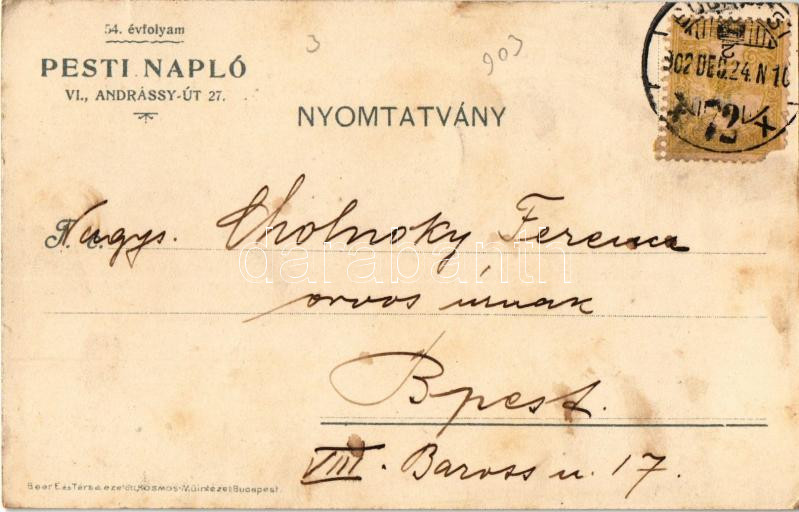 54. évfolyam
PESTI NAPLÓ
VI., ANDRÁSSY-ÚT 27.
3
903
NYOMTATVÁNY
902 DEC. 24. N 10
72
Nagys. Cholnoky Ferenc
orvos úrnak
Bpest.
VIII. Baross u. 17.
darabanth
Beer E. és Társa
KOSMOS Műintézet Budapest.